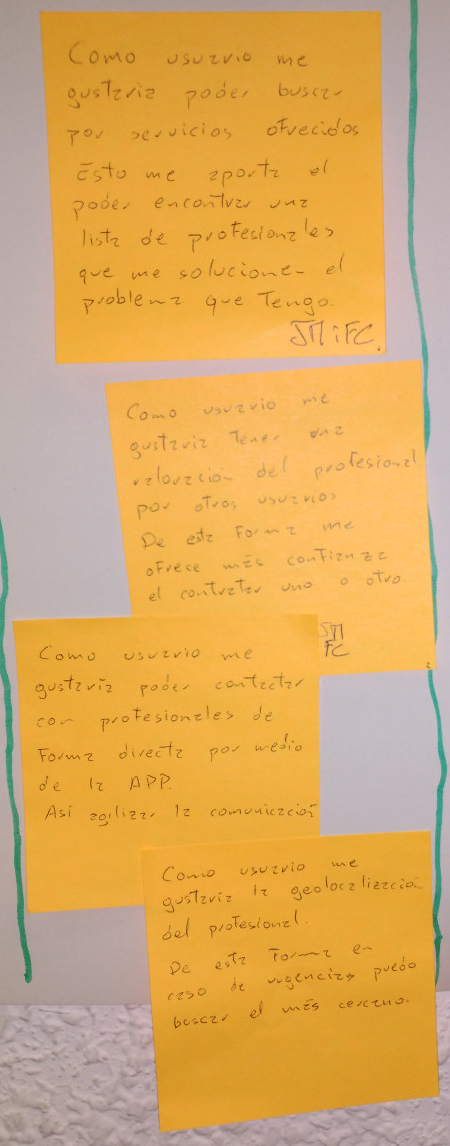 Como usuario me
gustaria poder buscar
por servicios ofrecidos
Esto me aporta el
poder encontrar una
lista de profesionales
que me solucionen el
problema que Tengo.
JMiFC.
Como usuario me
gustaria tener una
valoración del profesional
por otros usuarios
De esta Forma me
ofrece más confianza
el contratar uno o otro
JM
FC
Como usuario me
gustaría poder contactar
con profesionales de
Forma directa por medio
de la APP.
Así agilizar la comunicación
Como usuario me
gustaría la geolocalización
del profesional.
De esta Forma en
caso de urgencias puedo
buscar el más cercano.